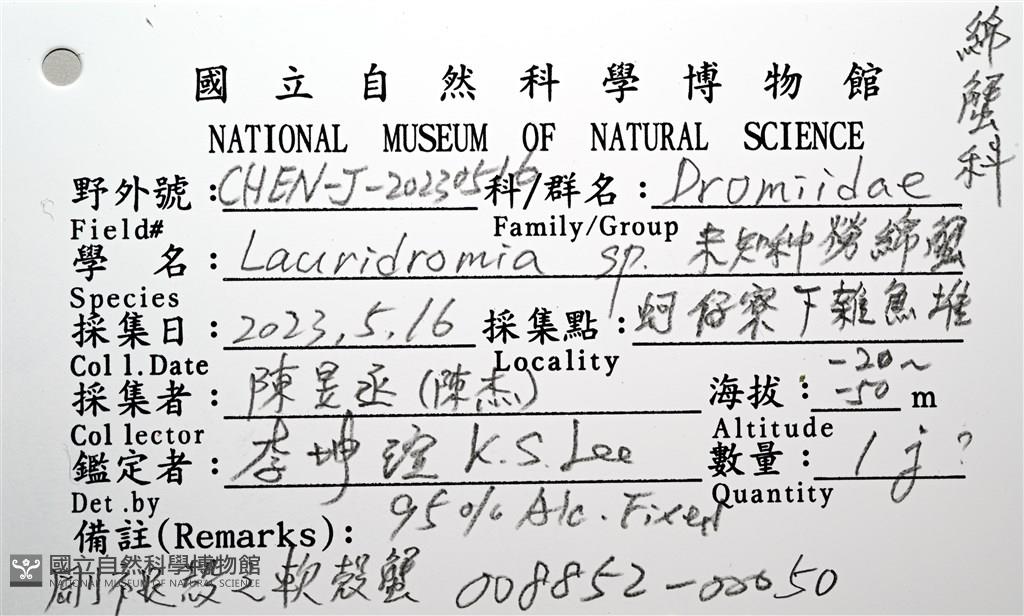 綿蟹科
國立自然科學博物館
NATIONAL MUSEUM OF NATURAL SCIENCE
野外號：CHEN-J-20230516 科/群名：Dromiidae
Field# Family/Group
學名：Lauridromia sp. 未知種勞綿蟹
Species
採集日：2023.5.16 採集點：蚵仔寮下雜魚堆
Coll.Date Locality
採集者：陳昱丞(陳杰) 海拔：-20~-50 m
Collector Altitude
鑑定者：李坤瑄 K.S. Lee 數量：1 j?
Det.by Quantity
95% Alc. Fixed
備註(Remarks):
國立自然科學博物館
NATIONAL MUSEUM OF NATURAL SCIENCE
剛 殼之軟殼蟹 008852-00050